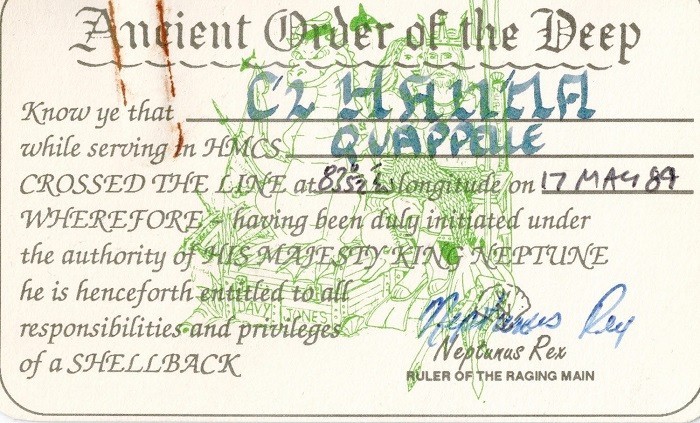 Ancient Order of the Deep
Know ye that C2 HANNA
while serving in HMCS QUAPPELLE
CROSSED THE LINE at longitude on 17 MAY 89
WHEREFORE - having been duly initiated under
the authority of HIS MAJESTY KING NEPTUNE
he is henceforth entitled to all
responsibilities and privileges
of a SHELLBACK
DAVY JONES
Neptunus Rex
Neptunus Rex
RULER OF THE RAGING MAIN